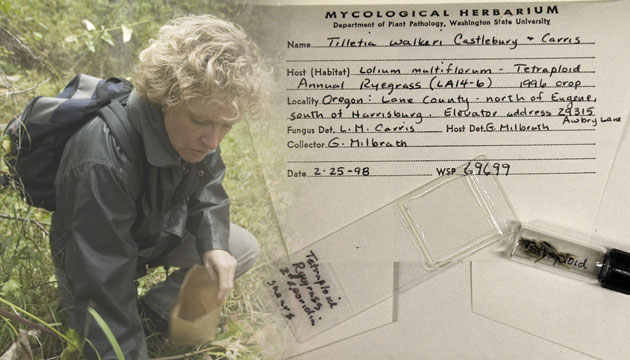 MYCOLOGICAL HERBARIUM
Department of Plant Pathology, Washington State University
Name Tilletia walkeri Castlebury & Carris
Host (Habitat) Lolium multiflorum - Tetraploid
Annual Ryegrass (LA14-6) 1996 crop
Locality Oregon: Lane County - north of Eugene,
south of Harrisburg. Elevator address 29315
Awbry Lane
Fungus Det. L.M. Carris Host Det. G. Milbrath
Collector G. Milbrath
Date 2-25-98 WSP 69699
Tetraploid
Tetraploid
Ryegrass
2° sporidia
smears